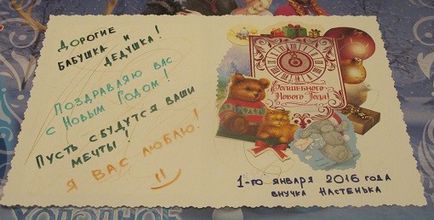 Дорогие
бабушка и
дедушка!
Поздравляю вас
с Новым Годом!
Пусть сбудутся ваши
мечты!
Я вас люблю!
Волшебного
Нового Года!
1-го января 2016 года
внучка Настенька